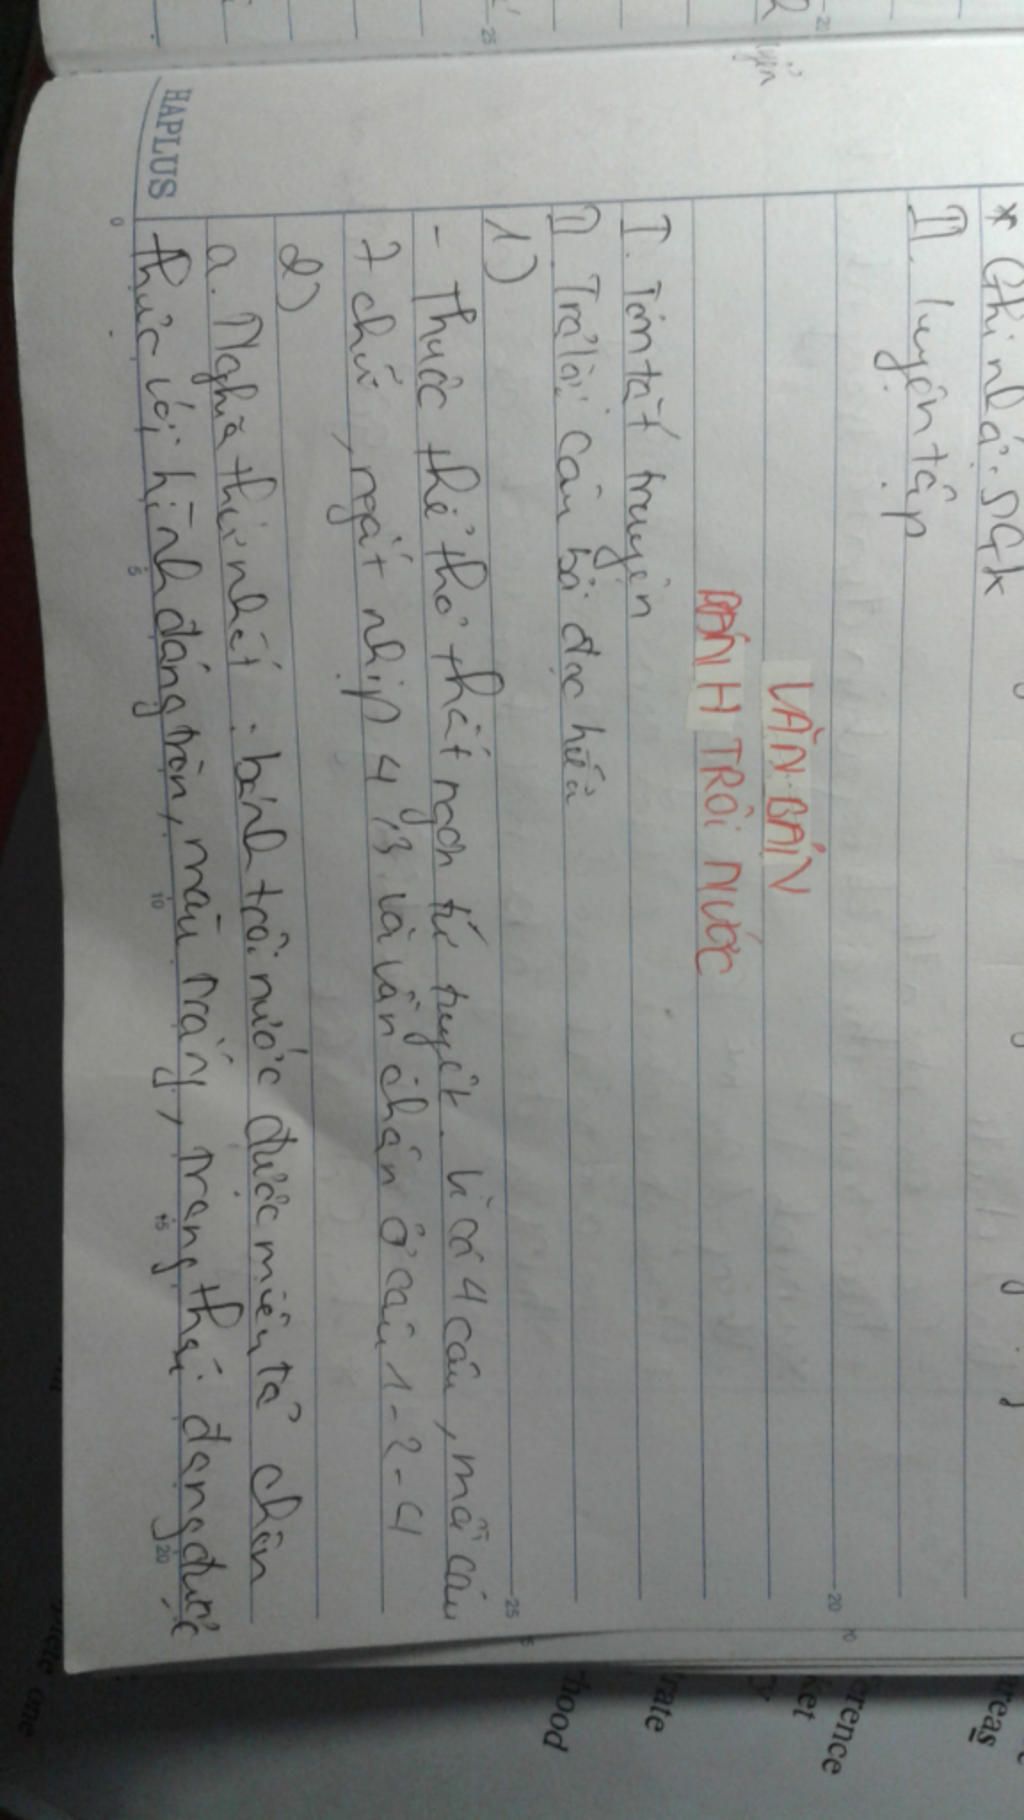 * Ghi nhớ: SGK
II. luyện tập
VĂN BẢN
BÁNH TRÔI NƯỚC
I. Tóm tắt truyện
II. Trả lời câu hỏi đọc hiểu
1)
- Thuộc thể thơ thất ngôn tứ tuyệt. Vì có 4 câu, mỗi câu
7 chữ, ngắt nhịp 4/3 và vần chân ở câu 1-2-4
2)
a. Nghĩa thứ nhất: bánh trôi nước được miêu tả chân
thực với hình dáng tròn, màu trắng, trạng thái đang được
HAPLUS
0
5
10
15
20
25
20
25
20
areas
erence
ket
rate
hood